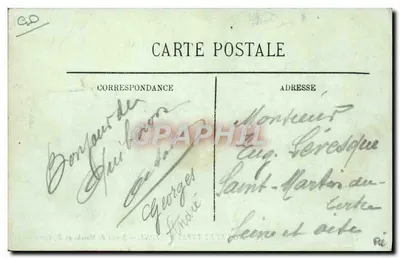 CARTE POSTALE
CORRESPONDANCE
ADRESSE
Bonjour de
Georges
André
Monsieur
Eug. Lévesque
Saint-Martin du
tertre
Seine et Oise
CPAPHIL